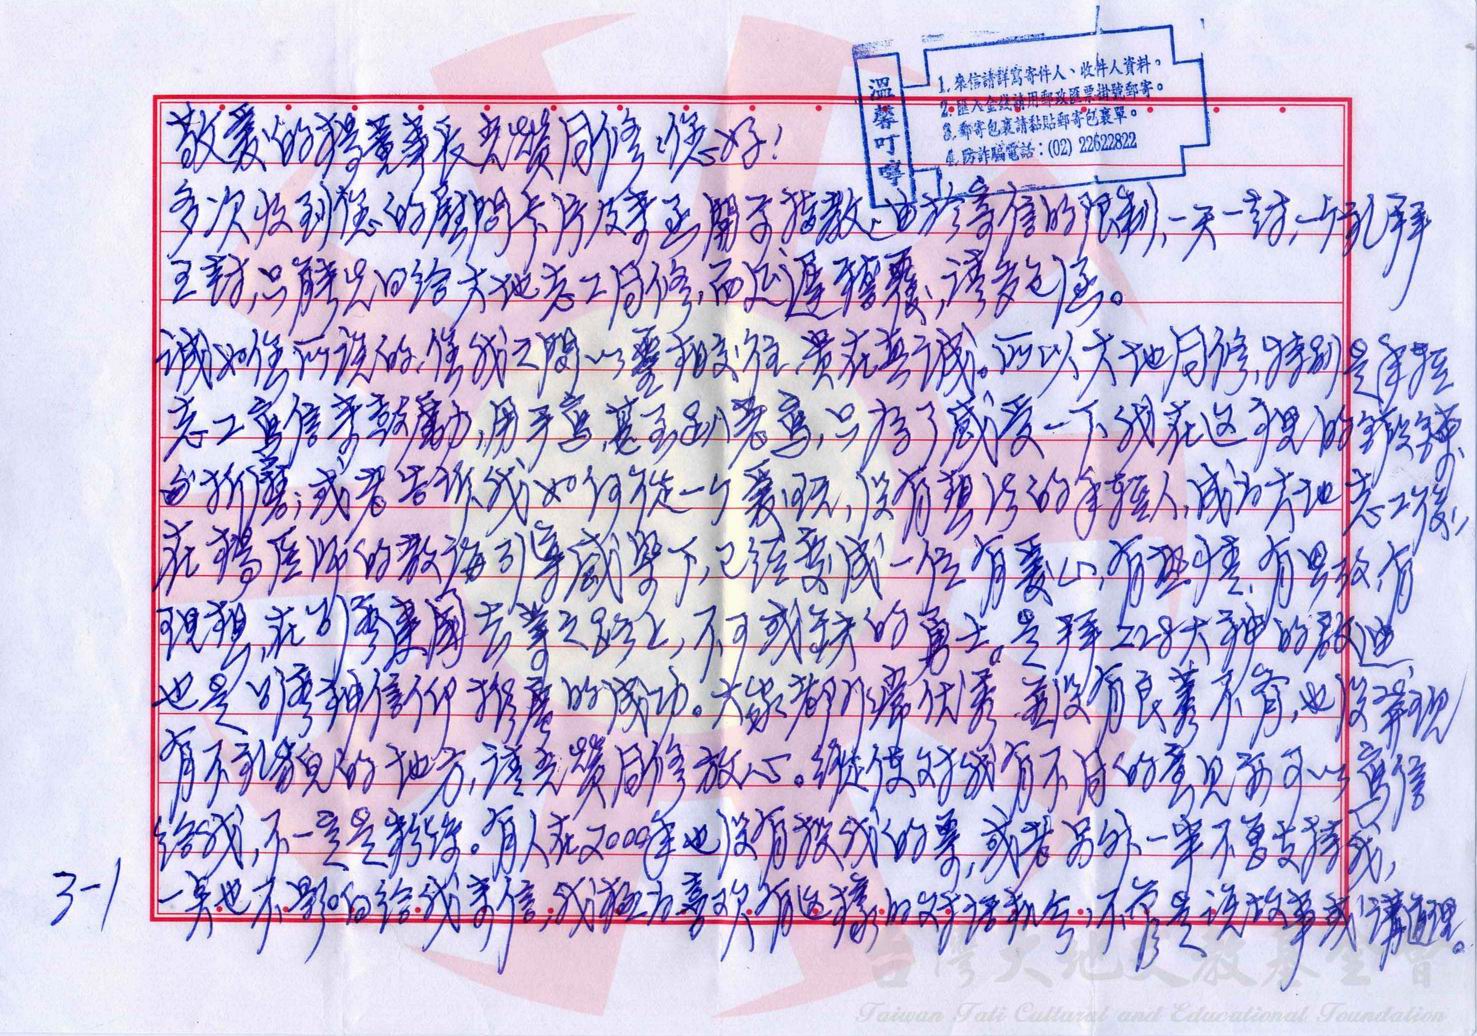 溫馨叮嚀
1. 來信請詳寫寄件人、收件人資料。
2. 匯入金錢請用郵政匯票掛號郵寄。
3. 郵寄包裹請黏貼郵寄包裹單。
4. 防詐騙電話：(02) 22622822
敬愛的楊 同修，您好！
多次收到您的慰問卡片及來函開示指教，由於寄信的限制，一天一封，一個禮拜
五封，只能先回給大地志工同修，而延遲奉覆，請多包涵。
誠如您所說的，您我之間以靈相交往，貴在真誠。所以大地同修，特別是年輕
志工寫信來鼓勵，用手寫，甚至 寫，只為了感受一下我在這裡的
折磨；或者告訴我如何從一個愛玩，沒有想法的年輕人，成為大地志工後，
在楊醫師的教誨引導感染下，已經變成一位有愛心，有熱情，有 有
理想，在 建國 之路上，不可或缺的勇士。是拜228大神的
也是 神信仰推廣的成功。大家都非常優秀，並沒有良莠不齊，也沒
有不禮貌的地方，請 同修放心。縱使對我有不同的意見，亦可以寫信
給我，不一定是粉絲。有人在2000年也沒有投我的票，或者另外一半不曾支持我，
一點也不影響給我來信，我極為喜歡有這樣的對話機會，不管是說故事或講道理。
3-1
台灣大地文教基金會
Taiwan Tati Cultural and Educational Foundation